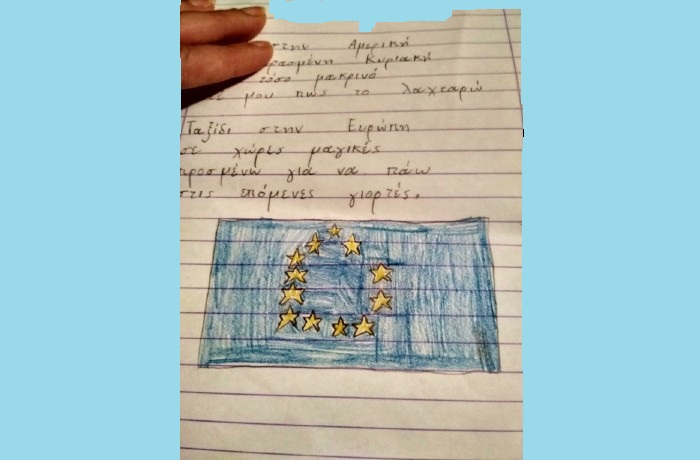 στην Αμερική
Κυριακή
τόσο μακρινό
μου πως το λαχταρώ
Ταξίδι στην Ευρώπη
σε χώρες μαγικές
προσμένω για να πάω
στις επόμενες γιορτές.